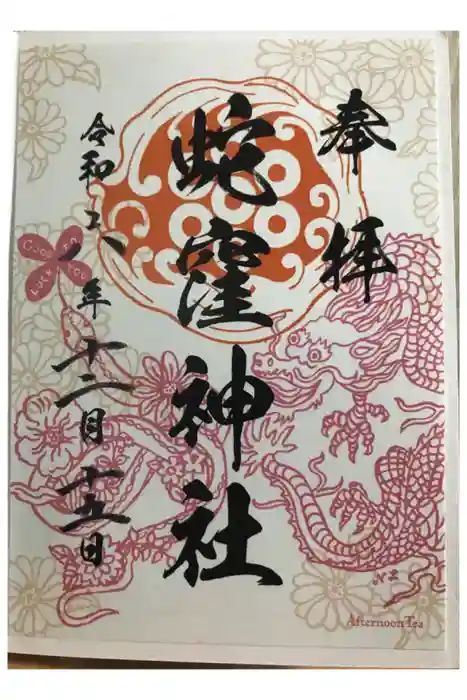 奉拝
蛇窪神社
令和六年十二月十五日
GOOD LUCK TO YOU
Afternoon Tea